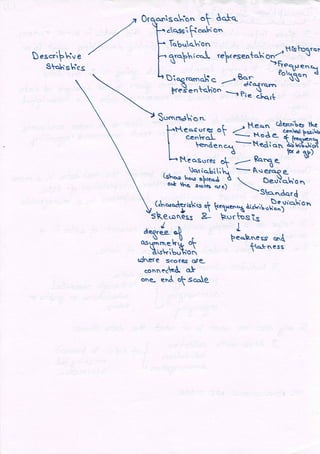 Organisation of data
classification
Tabulation
graphical representation
Histogram
Frequency
Polygon
Diagramatic
presentation
Bar
diagram
Pie chart
Descriptive
Statistics
Summation
Measures of
central
tendency
Mean (describes the
Mode
Median
central position
of frequency
distribution
for a gp)
Measures of
Variability
(shows how spread
out the scores are)
Range
Average
Deviation
Standard
Deviation
(characteristics of frequency distribution)
Skewness & kurtosis
degree of
asymmetry of
distribution
where scores are
connected at
one end of scale
peakness and
flatness